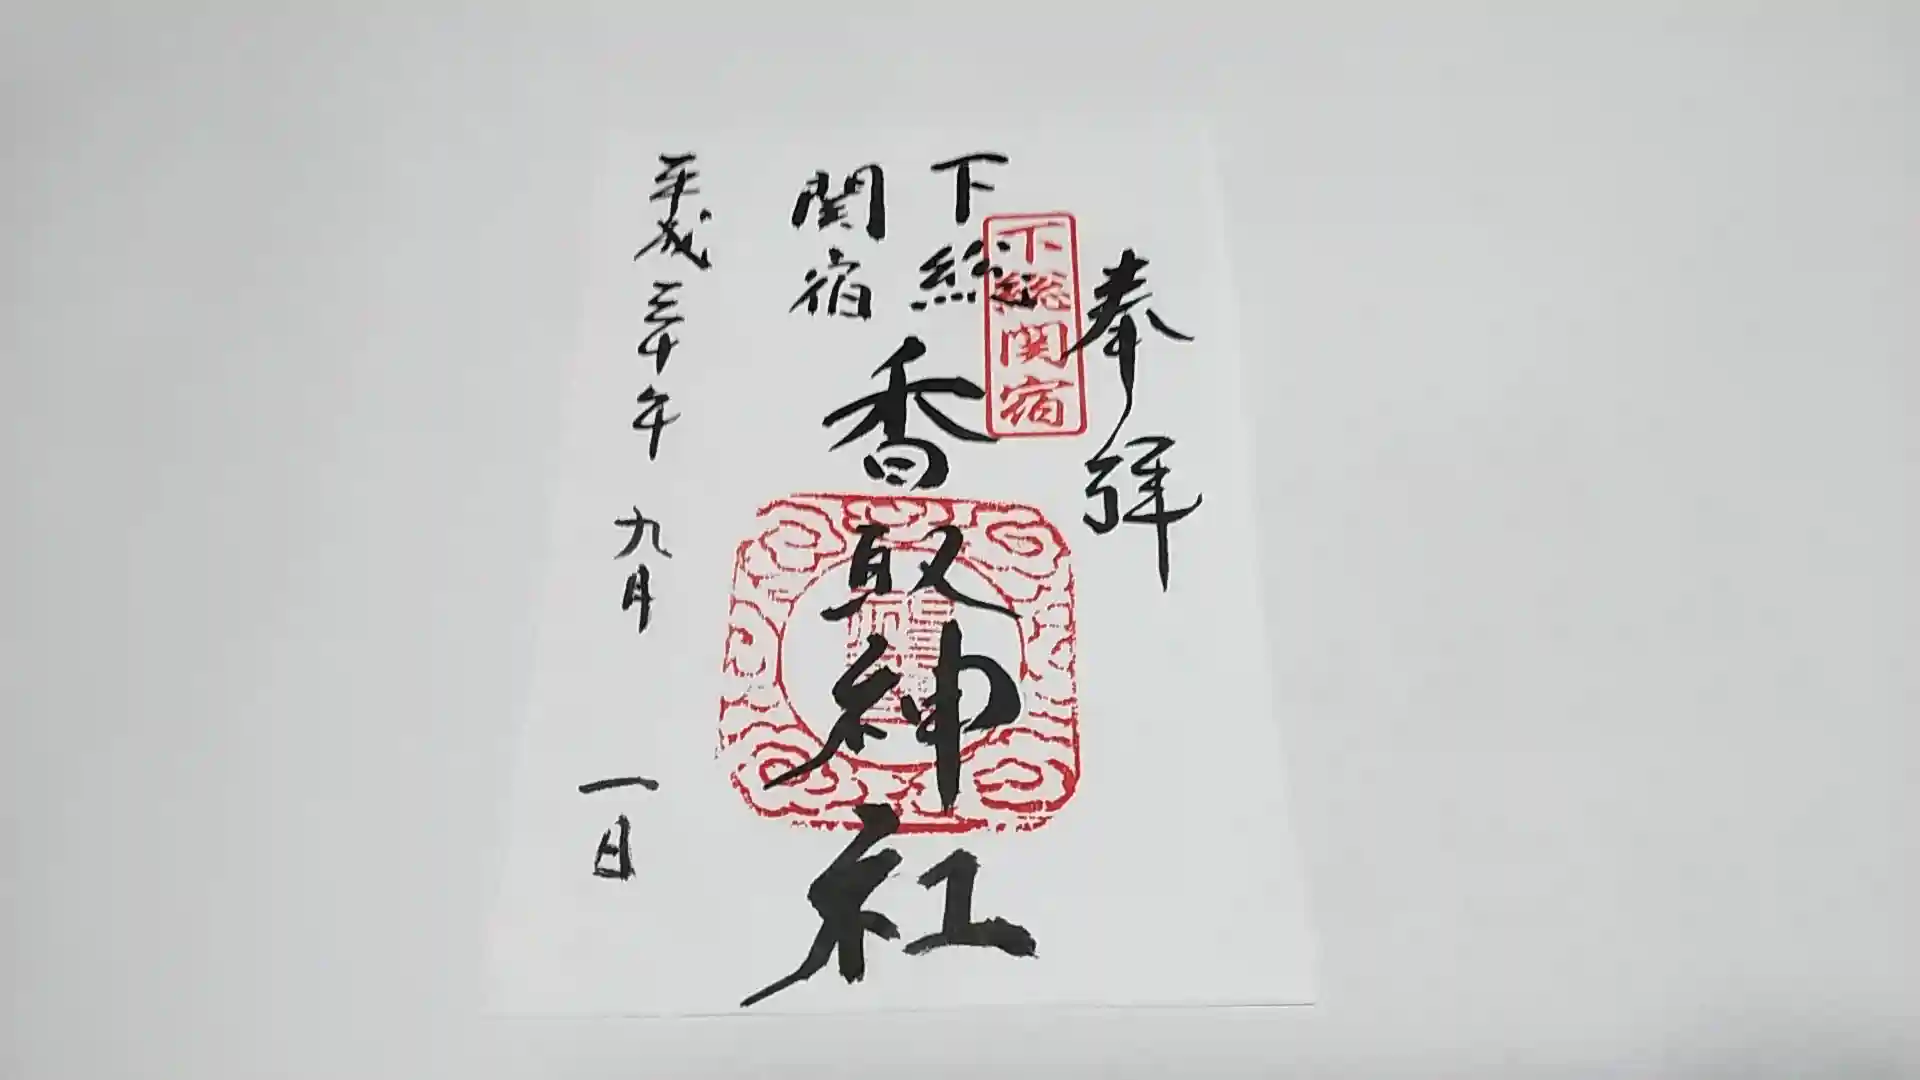 奉拝
下総関宿
下総
関宿
香取神社
平成三十年九月一日